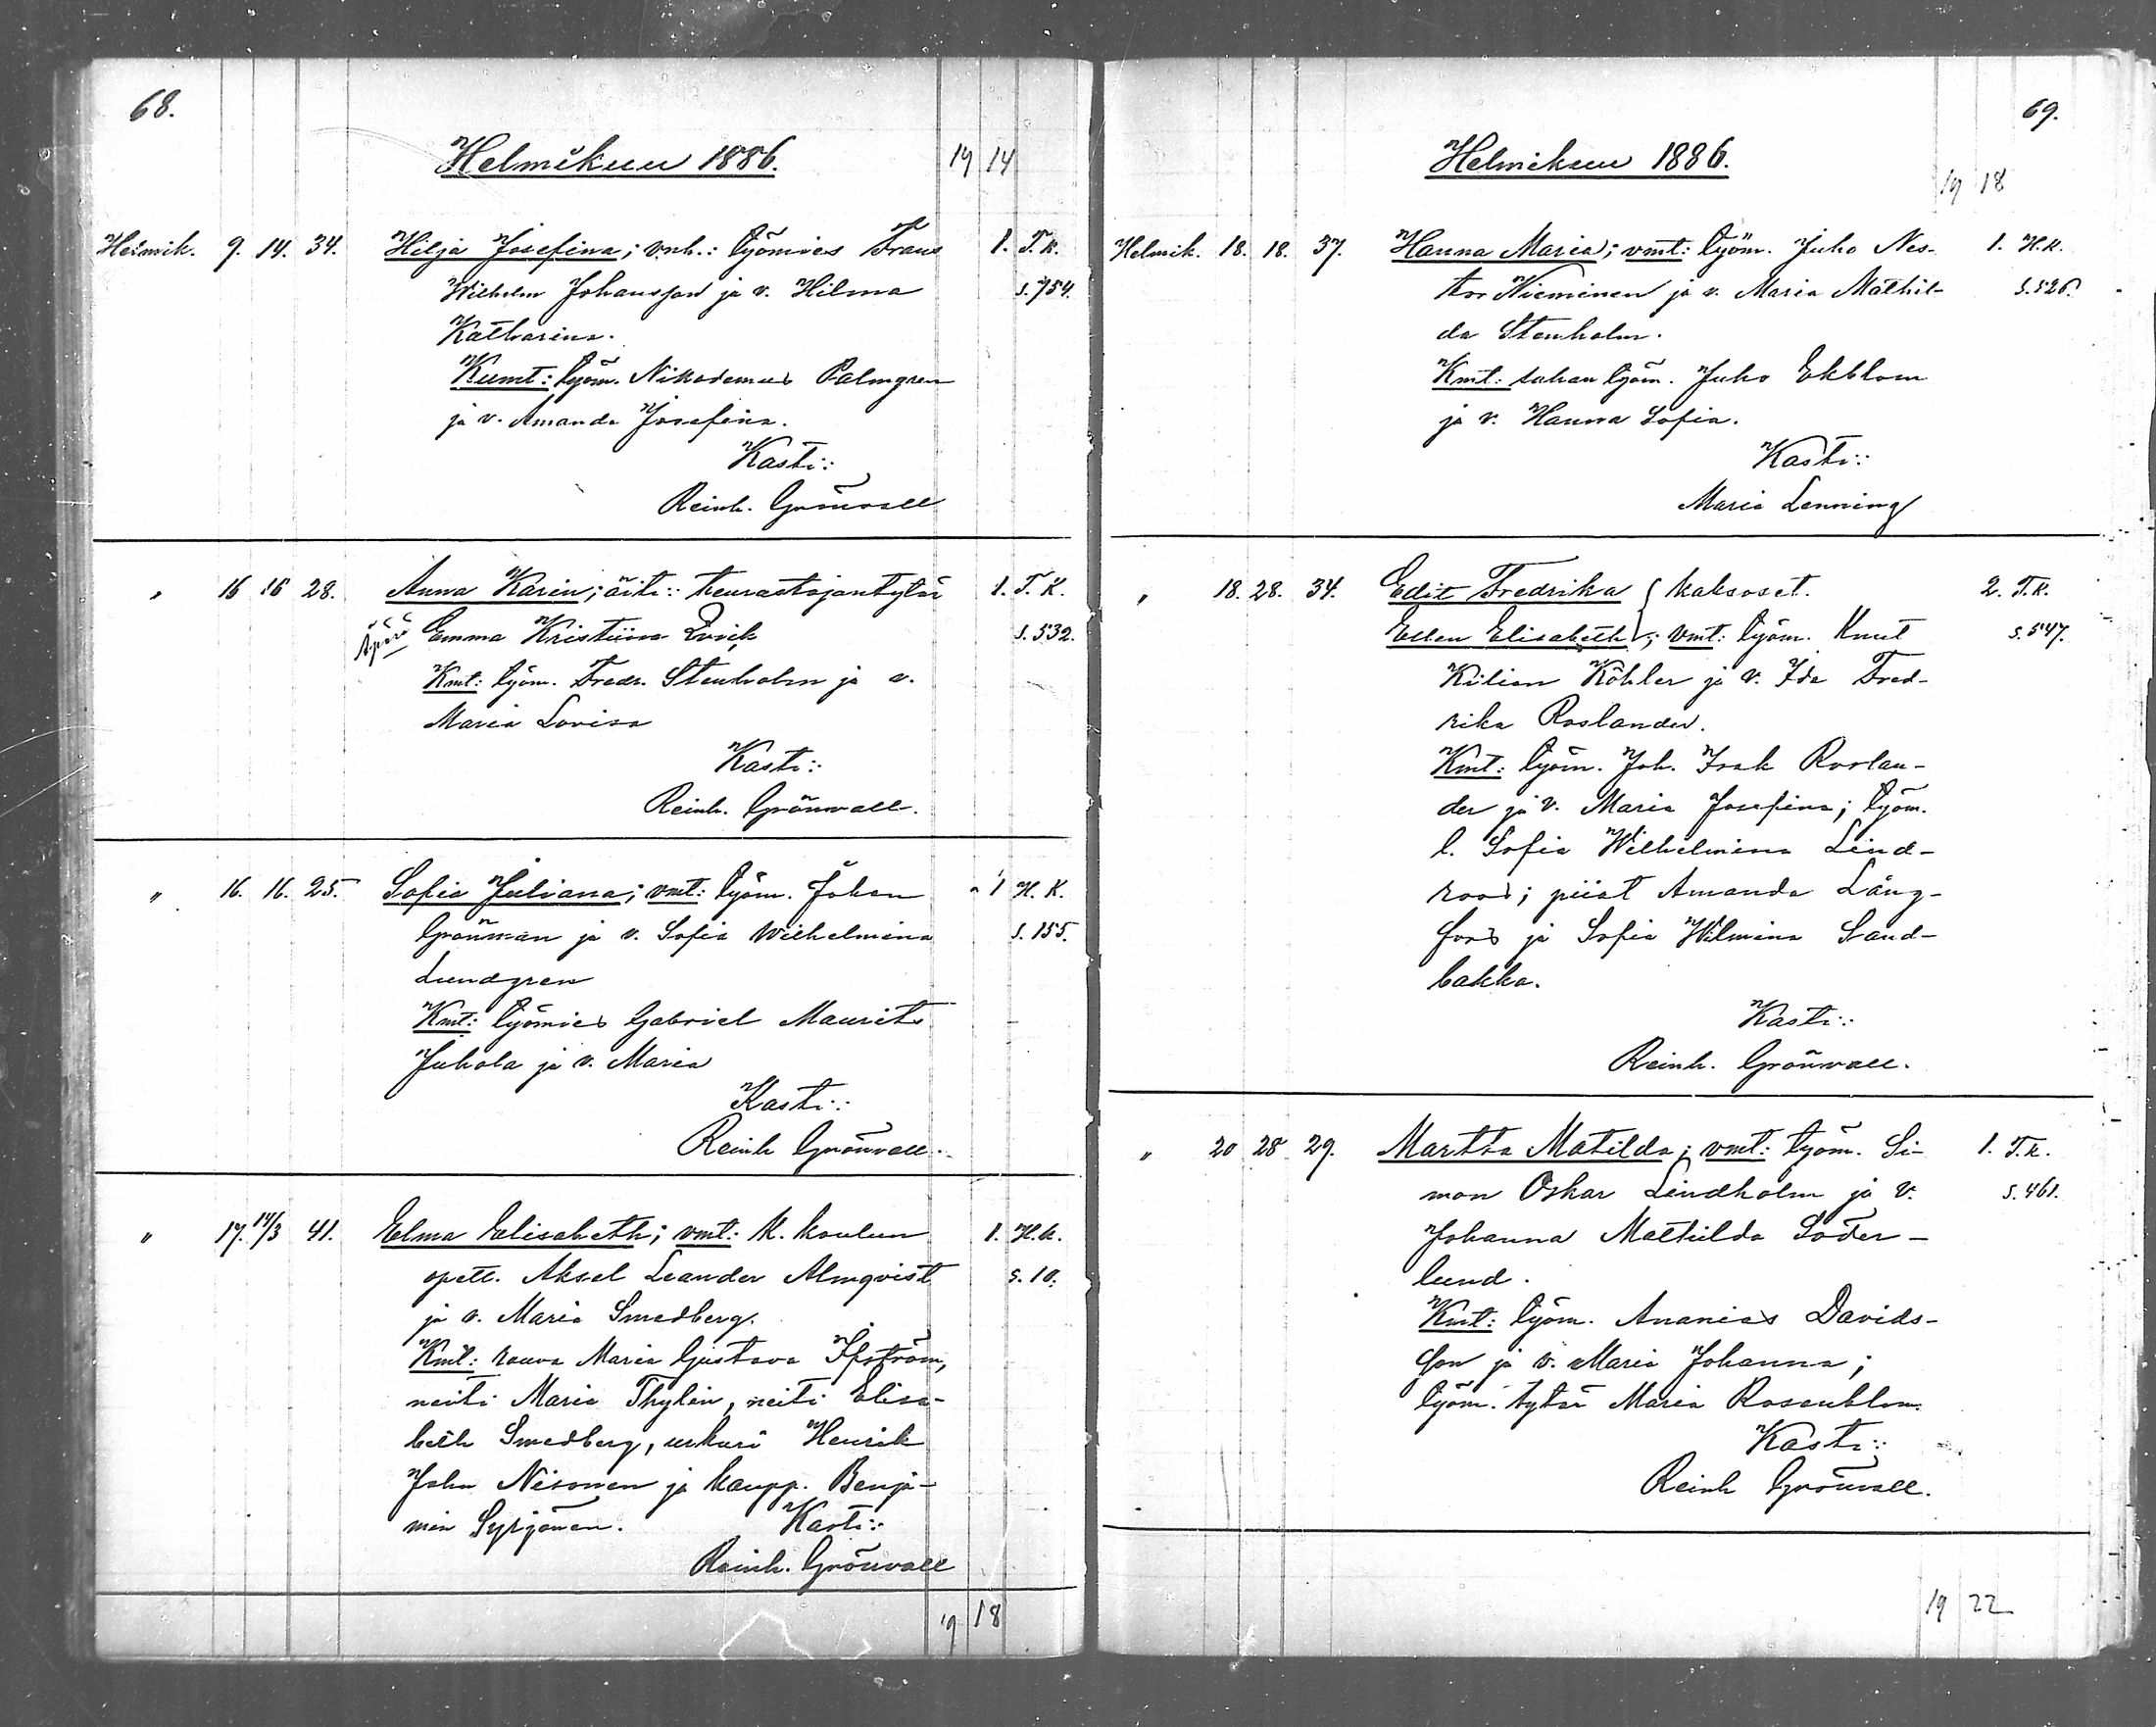 68.
Helmikuu 1886. 19 14
Helmik. 9. 14. 34. Hilja Josefina; vnh.: työmies Frans 1. T.K.
Wilhelm Johansson ja v. Hilma s. 754.
Katharina.
Kumt: työm. Nikodemus Palmgren
ja v. Amanda Josefina.
Kasti:
Reinh. Grönvall
" 16 16 28. Anna Karin; äiti: teurastajantytär 1. T.K.
Äpärä Emma Kristiina s. 532.
Kmt: työm. Fredr. Stenholm ja v.
Maria Lovisa
Kasti:
Reinh. Grönvall.
" 16. 16. 25. Sofia Juliana; vmt: työm. Johan 1 H.K.
Grönman ja v. Sofia Wilhelmina s. 155.
Lundgren
Kmt: työmies Gabriel Maurits
Juhola ja v. Maria
Kasti:
Reinh Grönvall.
" 17. 14/3 41. Elma Elisabeth; vmt: k. koulun 1. H.K.
opett. Aksel Leander Almqvist s. 10.
ja v. Maria Smedberg.
Kmt: rouva Maria Gustava
neiti Maria Thylin, neiti Elisa-
beth Smedberg, urkuri Henrik
John Nisonen ja kaupp. Benja-
min Syrjänen. Kasti:
Reinh. Grönvall
19 18
69.
Helmikuu 1886.
19 18
Helmik. 18. 18. 37. Hanna Maria; vmt: työm. Juho Nes- 1. H.K.
tor Nieminen ja v. Maria Mathil- s. 526.
da Stenholm.
Kmt: sahan työm. Juho Ekblom
ja v. Hanna Sofia.
Kasti:
Maria Lenning
" 18. 28. 34. Edit Fredrika } kaksoset. 2. T.K.
Ellen Elisabeth; vmt: työm. Knut s. 547.
Kilian Köhler ja v. Ida Fred-
rika Roslander.
Kmt: työm. Joh. Isak Roslan-
der ja v. Maria Josefina; työm.
l. Sofia Wilhelmina Lind-
roos; piiat Amanda Lång-
fors ja Sofia Wilmina Sand-
bakka.
Kasti:
Reinh. Grönvall.
" 20 28 29. Martta Matilda; vmt: työm. Si- 1. T.K.
mon Oskar Lindholm ja v. s. 461.
Johanna Mathilda Söder-
lund.
Kmt: työm. Ananias Davids-
son ja v. Maria Johanna;
työm. tytär Maria Rosenblom.
Kasti:
Reinh Grönvall.
19 22